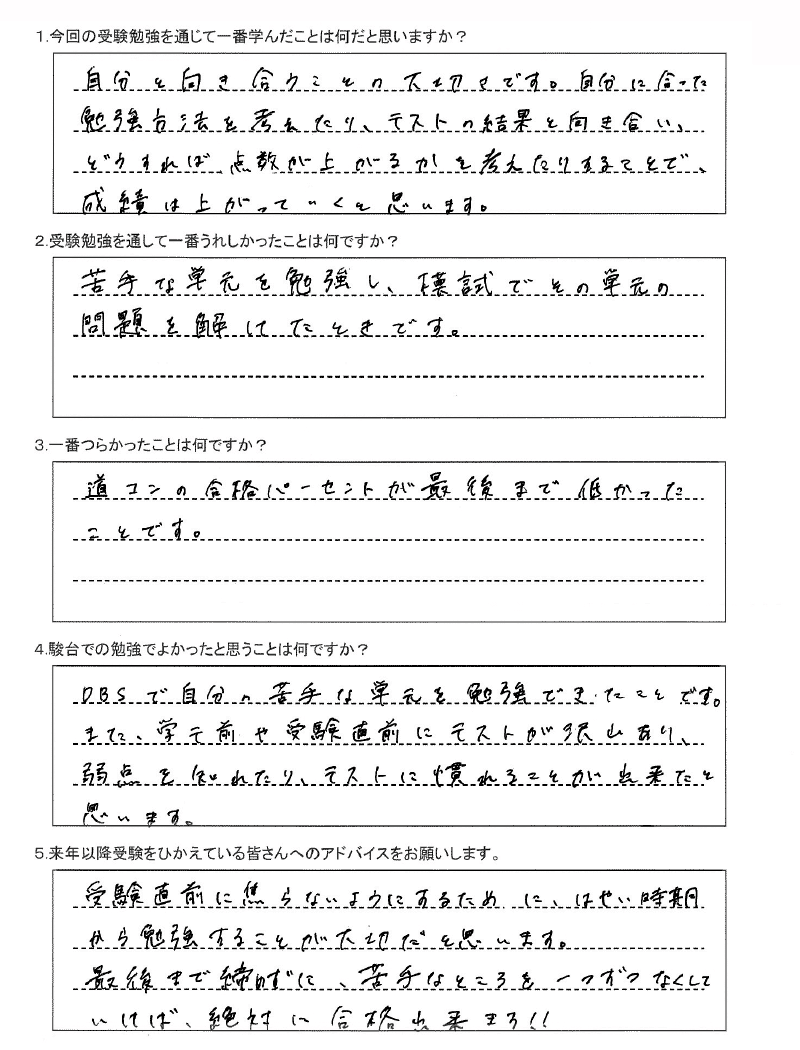 1.今回の受験勉強を通じて一番学んだことは何だと思いますか？
自分と向き合うことの大切さです。自分に合った
勉強方法を考えたり、テストの結果と向き合い、
どうすれば点数が上がるかを考えたりすることで、
成績は上がっていくと思います。
2.受験勉強を通して一番うれしかったことは何ですか？
苦手な単元を勉強し、模試でその単元の
問題を解けたときです。
3.一番つらかったことは何ですか？
道コンの合格パーセントが最後まで低かった
ことです。
4.駿台での勉強でよかったと思うことは何ですか？
DBSで自分の苦手な単元を勉強できたことです。
また、学テ前や受験直前にテストが沢山あり、
弱点を知れたり、テストに慣れることが出来たと
思います。
5.来年以降受験をひかえている皆さんへのアドバイスをお願いします。
受験直前に焦らないようにするために、はやい時期
から勉強することが大切だと思います。
最後まで締めずに、苦手なところを一つずつなくして
いけば、絶対に合格出来まろ!!